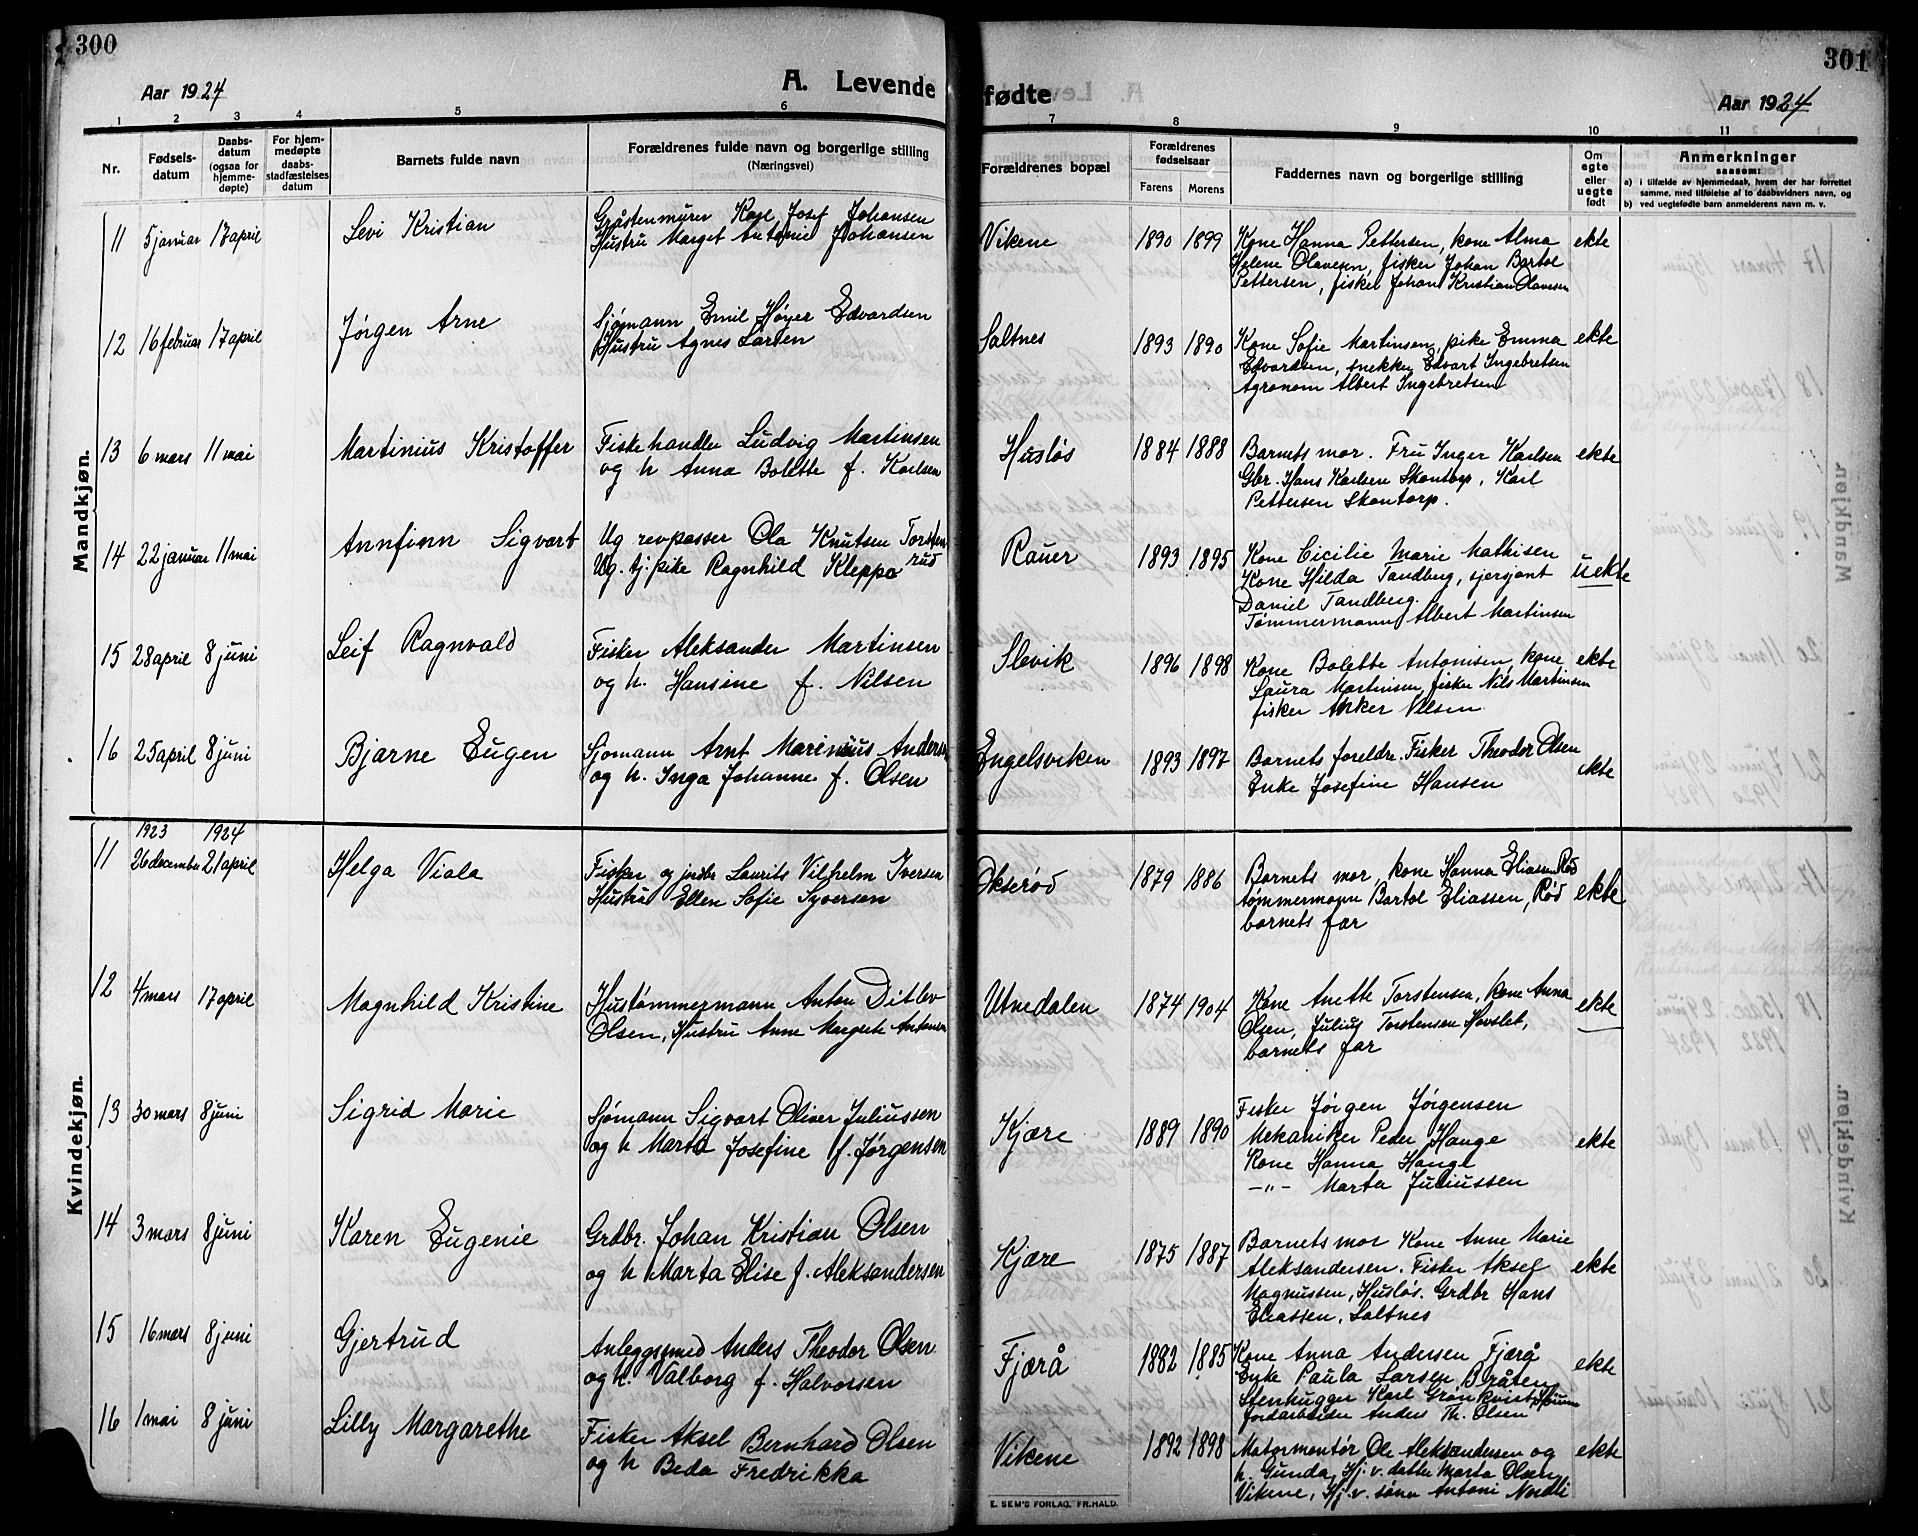 300
Aar 1924
A. Levende
1 2 3 4 5 6
Nr.
Fødsels-
datum
Daabs-
datum
(ogsaa for
hjemme-
døpte)
For hjem-
medøpte
daabs-
stadfæstelses
datum
Barnets fulde navn
Forældrenes fulde navn og borgerlige stilling
(Næringsvei)
Mandkjøn.
11 5 januar 17 april Levi Kristian
Gråstenmurer Karl Josef Johansen
Hustru Marget Antonie Johansen
12 16 februar 17 april Jørgen Arne
Sjømann Emil Høyer Edvardsen
Hustru Agnes Larsen
13 6 mars 11 mai Martinius Kristoffer
Fiskehandler Ludvig Martinsen
og h Anna Bolette f. Karlsen
14 22 januar 11 mai Annfinn Sigvart
Ug revpasser Ola Knutsen Torsten
rud
Ug. tj. pike Ragnhild Kleppa
15 28 april 8 juni Leif Ragnvald
Fisker Aleksander Martinsen
og h. Hansine f. Nilsen
16 25 april 8 juni Bjarne Eugen
Sjomann Arnt Marinius Anders
og h. Inga Johanne f. Olsen
Kvindekjøn.
1923 1924
11 26 december 21 april Helga Viola
Fisker og jordbr Laurits Vilhelm Iversen
Hustru Ellen Sofie Syversen
12 4 mars 17 april Magnhild Kristine
Hustømmermann Anton Ditlev
Olsen, Hustru Anne Margrete Antonsen
13 30 mars 8 juni Sigrid Marie
Sjømann Sigvart Oliver Juliussen
og h Marta Josefine f. Jørgensen
14 3 mars 8 juni Karen Eugenie
Grdbr. Johan Kristian Olsen
og h Marta Elise f. Aleksandersen
15 16 mars 8 juni Gjertrud
Anleggssmed Anders Theodor Olsen
og h. Valborg f. Halvorsen
16 1 mai 8 juni Lilly Margarethe
Fisker Aksel Bernhard Olsen
og h Beda Fredrikka
301
Aar 1924
fødte
7 8 9 10 11
Forældrenes bopæl
Forældrenes
fødselsaar
Farens Morens
Faddernes navn og borgerlige stilling
Om
egte
eller
uegte
født
Anmerkninger
saasom:
a) i tilfælde av hjemmedaab, hvem der har forrettet
samme, med tilføielse af to daabsvidners navn, og
b) ved uegtefødte barn anmelderens navn m. v.
Vikene 1890 1899 Kone Hanna Pettersen, kone Alma ekte
Helene Olavesen, fisker Johan Bartol
Pettersen, fisker Johan Kristian Olavesen
Saltnes 1893 1890 Kone Sofie Martinsen, pike Emma ekte
Edvardsen, snekker Edvart Ingebretsen
Agronom Albert Ingebretsen
Husløs 1884 1888 Barnets mor. Fru Inger Karlsen ekte
Gbr. Hans Karlsen Skontorp, Karl
Pettersen Skontorp.
Rauer 1893 1895 Kone Cicilie Marie Mathisen uekte
Kone Hilda Tandberg, sjersjant
Daniel Tandberg.
Tømmermann Albert Martinsen
Slevik 1896 1898 Kone Bolette Antonisen, kone ekte
Laura Martinsen, fisker Nils Martinsen
fisker Anker Nilsen
Engelsviken 1893 1897 Barnets foreldre. Fisker Theodor Olsen ekte
Enke Josefine Hansen
Okserød 1879 1886 Barnets mor, kone Hanna Eliassen Rød ekte
tømmermann Bartol Eliassen, Rød
barnets far
Utnedalen 1874 1904 Kone Anette Torstensen, kone Anna ekte
Olsen, Julius Torstensen Hovslet,
barnets far
Kjære 1889 1890 Fisker Jørgen Jørgensen ekte
Mekaniker Peder Hauge
Kone Hanna Hauge
–„– Marta Juliussen
Kjære 1875 1887 Barnets mor Kone Anne Marie ekte
Aleksandersen. Fisker Aksel
Magnussen, Husløs. Grdbr Hans
Eliassen, Saltnes
Fjærå 1882 1885 Kone Anna Andersen Fjærå ekte
Enke Paula Larsen Bråten
Stenhugger Karl Grønkvist
Jordarbeider Anders Th. Olsen
Vikene 1892 1898 Motormontør Ole Aleksandersen og ekte
h. Gunda, Hj. v. datter Marta Olsen
Vikene, Hj. v. sønn Antoni Nordli
E. SEM'S FORLAG. FR.HALD.